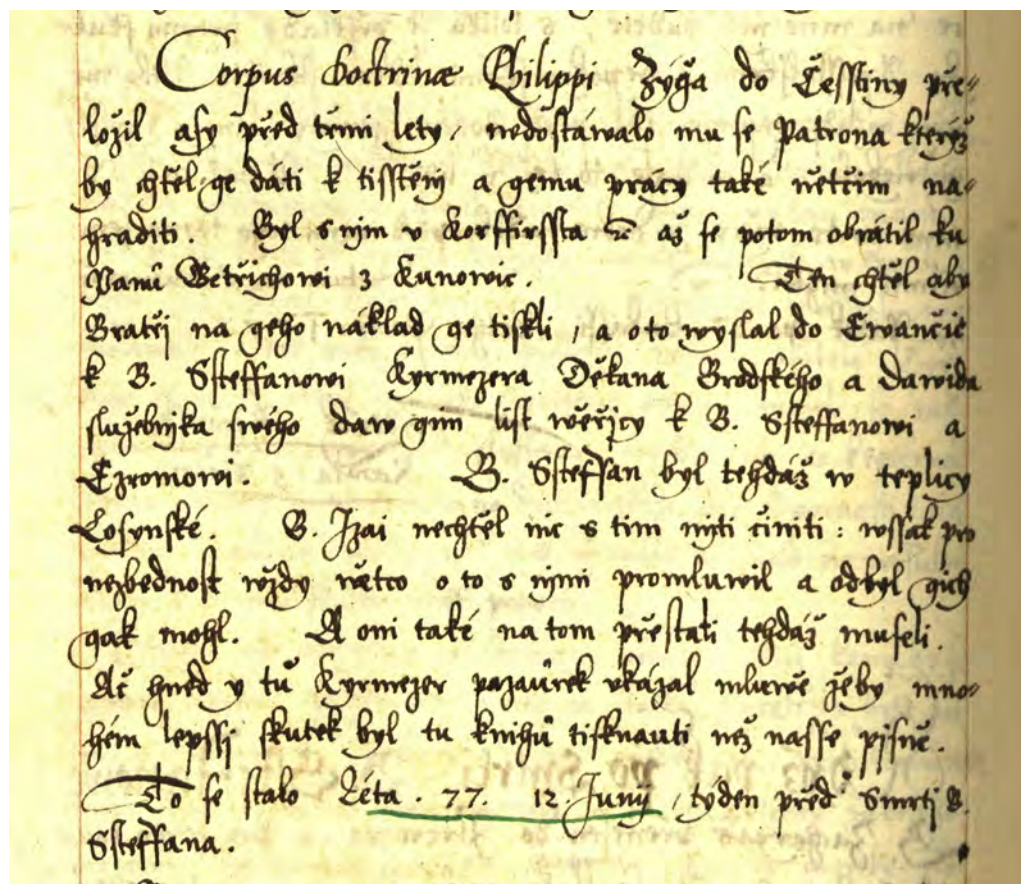 Corpus Doctrinæ Philippi Zýga do Cžesstiny pře-
ložil asy před třmi lety, nedostáwalo mu se Patrona kterýž
by chtěl ge dáti k tisstěnj a gemu prácy také něčim na-
hraditi. Byl s njm v Korffirssta až se potom obrátil ku
Panu Getřichowi z Kunowic. Ten chtěl aby
Bratřj na geho náklad ge tiskli, a o to wyslal do Ewančic
k B. Ssteffanowi Kyrmezera Děkana Brodského a Dawida
služebnjka swého daw gim list wěřjcý k B. Ssteffanowi a
Ezromowi. B. Ssteffan byl tehdáž w teplicy
Losynské. B. Izai nechtěl nic s tim mjti činiti: wssak pro
nezbednost wždy něco o to s njmi promluwil a odbyl gich
gak mohl. A oni také na tom přestati tehdáž museli.
Ač hned y tu Kyrmezer pazaurek vkázal mluwě žeby mno-
hém lepssj skutek byl tu knihu tisknauti než nasse pjsně.
To se stalo Léta. 77. 12. Junÿ, týden před Smrtj B.
Ssteffana.